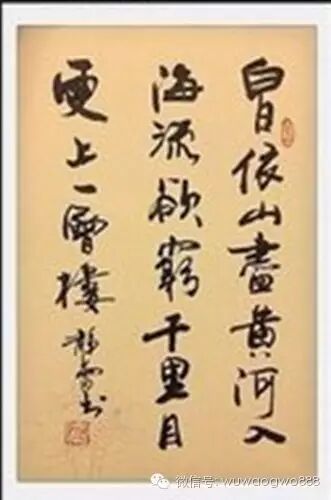 白日依山盡黄河入
海流欲窮千里目
更上一層樓
微信号: wuwaogwo888